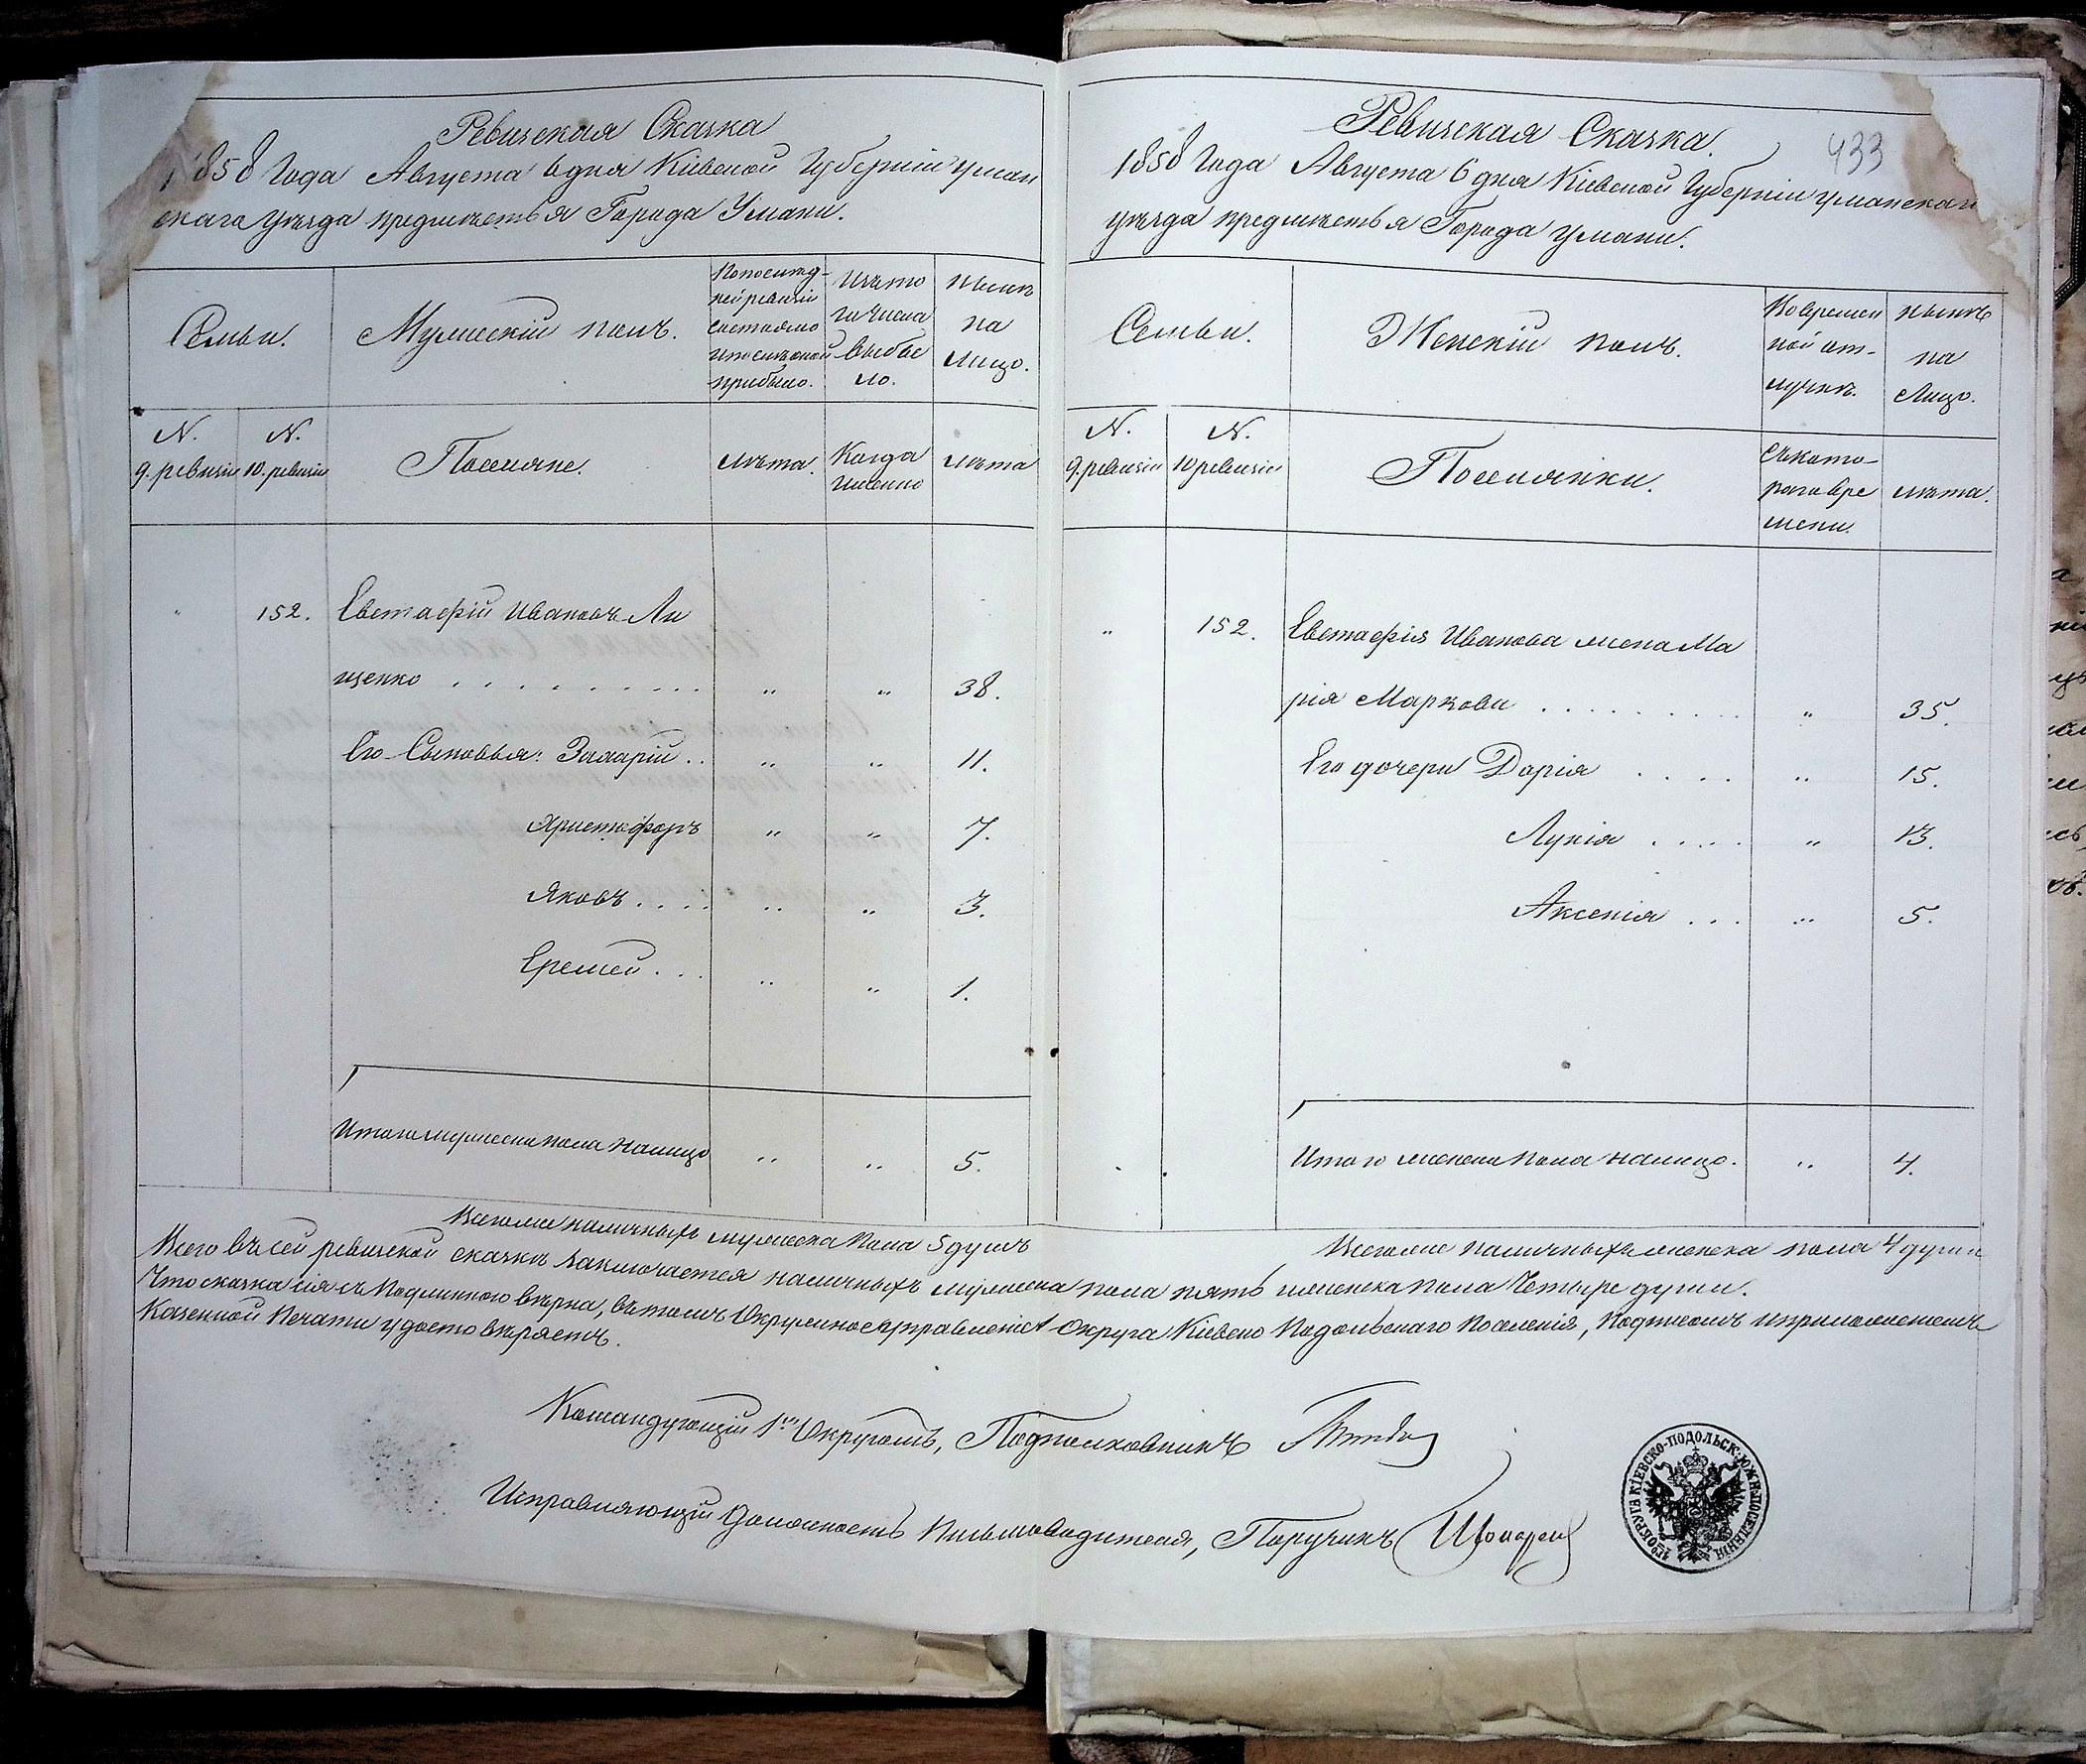 Ревизская Сказка
1858 Года Августа 6 дня Кіевской Губерніи Уман
скаго уѣзда предмѣстья Города Умани.
Семьи.
Мужескій полъ.
По послѣд-
ней ревизіи
состояло
и послѣ оной
прибыло.
Изъ то
го числа
выбы
ло.
Нынѣ
на
Лицо.
N.
9. ревизіи
N.
10. ревизіи
Поселяне.
Лѣта.
Когда
именно
Лѣта
152.
Евстафій Ивановъ Ли
щенко . . . . . . . . . . „ „ 38.
Его Сыновья: Захарій . . „ „ 11.
Христофоръ „ „ 7.
Яковъ . . . . „ „ 3.
Еремей . . . „ „ 1.
Итого мужеска пола налицо „ „ 5.
Всего же наличныхъ мужеска пола 5 душъ
Ревизская Сказка.
433
1858 Года Августа 6 дня Кіевской Губерніи Уманскаго
уѣзда предмѣстья Города Умани.
Семьи.
Женскій полъ.
Во времен
ной от-
лучкѣ.
Нынѣ
на
Лицо.
N.
9. ревизіи
N.
10 ревизіи
Поселянки.
Съ кото-
раго вре
мени.
Лѣта.
„ 152.
Евстафія Иванова жена Ма
рія Маркова . . . . . . . . . „ 35.
Его дочери Дарія . . . . „ 15.
Лукія . . . . „ 13.
Аксенія . . . „ 5.
Итого женска пола налицо. „ 4.
Всего же наличныхъ женска пола 4 души
Всего въ сей ревизской сказкѣ заключается наличныхъ мужеска пола пять, женска пола Четыре души.
Что сказка сія съ Подлинною вѣрна, въ томъ Окружное Управленіе 1 Округа Кіевско Подольскаго Поселенія, Подписомъ и приложеніемъ
Казенной Печати удостовѣряетъ.
Командующій 1мъ Округомъ, Подполковникъ
Исправляющій Должность Письмоводителя, Поручикъ
1ГО ОКРУГА КІЕВСКО-ПОДОЛЬСК: ЮЖН: ПОСЕЛЕНІЯ